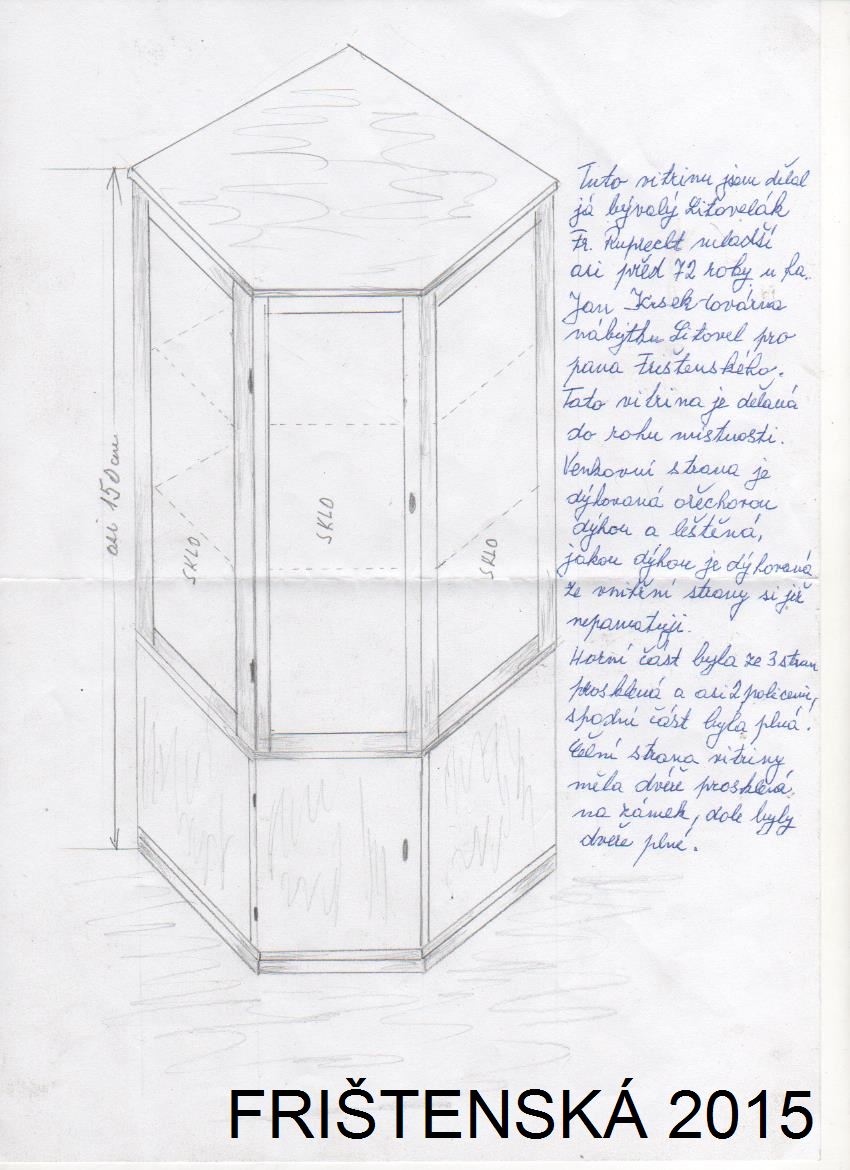 Tuto vitrinu jsem dělal
já bývalý Litovelák
Fr. Ruprecht mladší
asi před 72 roky u fa.
Jan Krsek továrna
nábytku Litovel pro
pana Frištenského.
Tato vitrina je dělaná
do rohu místnosti.
Venkovní strana je
dýhovaná ořechovou
dýhou a leštěná,
jakou dýhou je dýhovaná
ze vnitřní strany si již
nepamatuji.
Horní část byla ze 3 stran
prosklená a asi 2 policemi,
spodní část byla plná.
Čelní strana vitriny
měla dvéře prosklené
na zámek, dole byly
dvéře plné.
asi 150 cm
SKLO
SKLO
SKLO
FRIŠTENSKÁ 2015